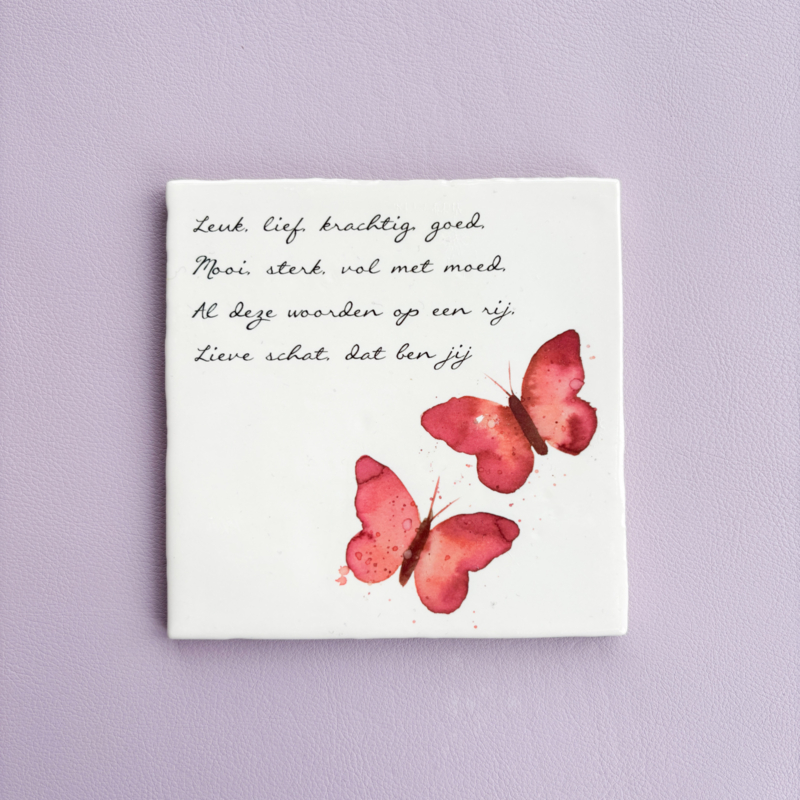 Leuk, lief, krachtig, goed,
Mooi, sterk, vol met moed,
Al deze woorden op een rij,
Lieve schat, dat ben jij